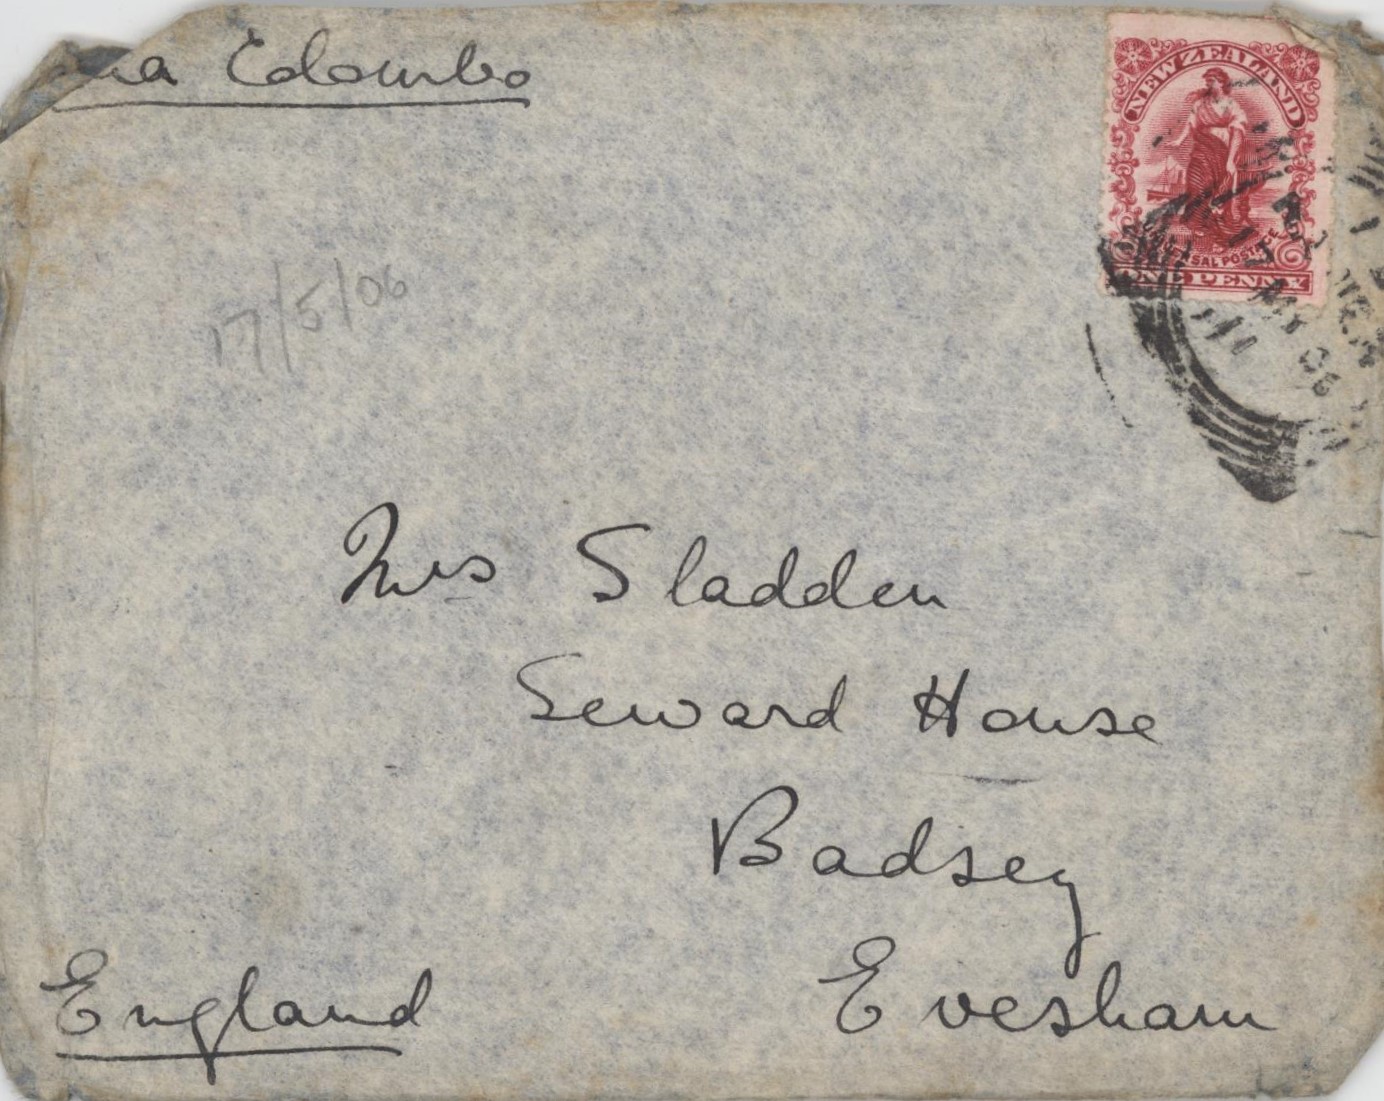 via Colombo
NEW ZEALAND
UNIVERSAL POSTAGE
ONE PENNY
17 MY 06
17/5/06
Mrs Sladden
Seward House
Badsey
Evesham
England